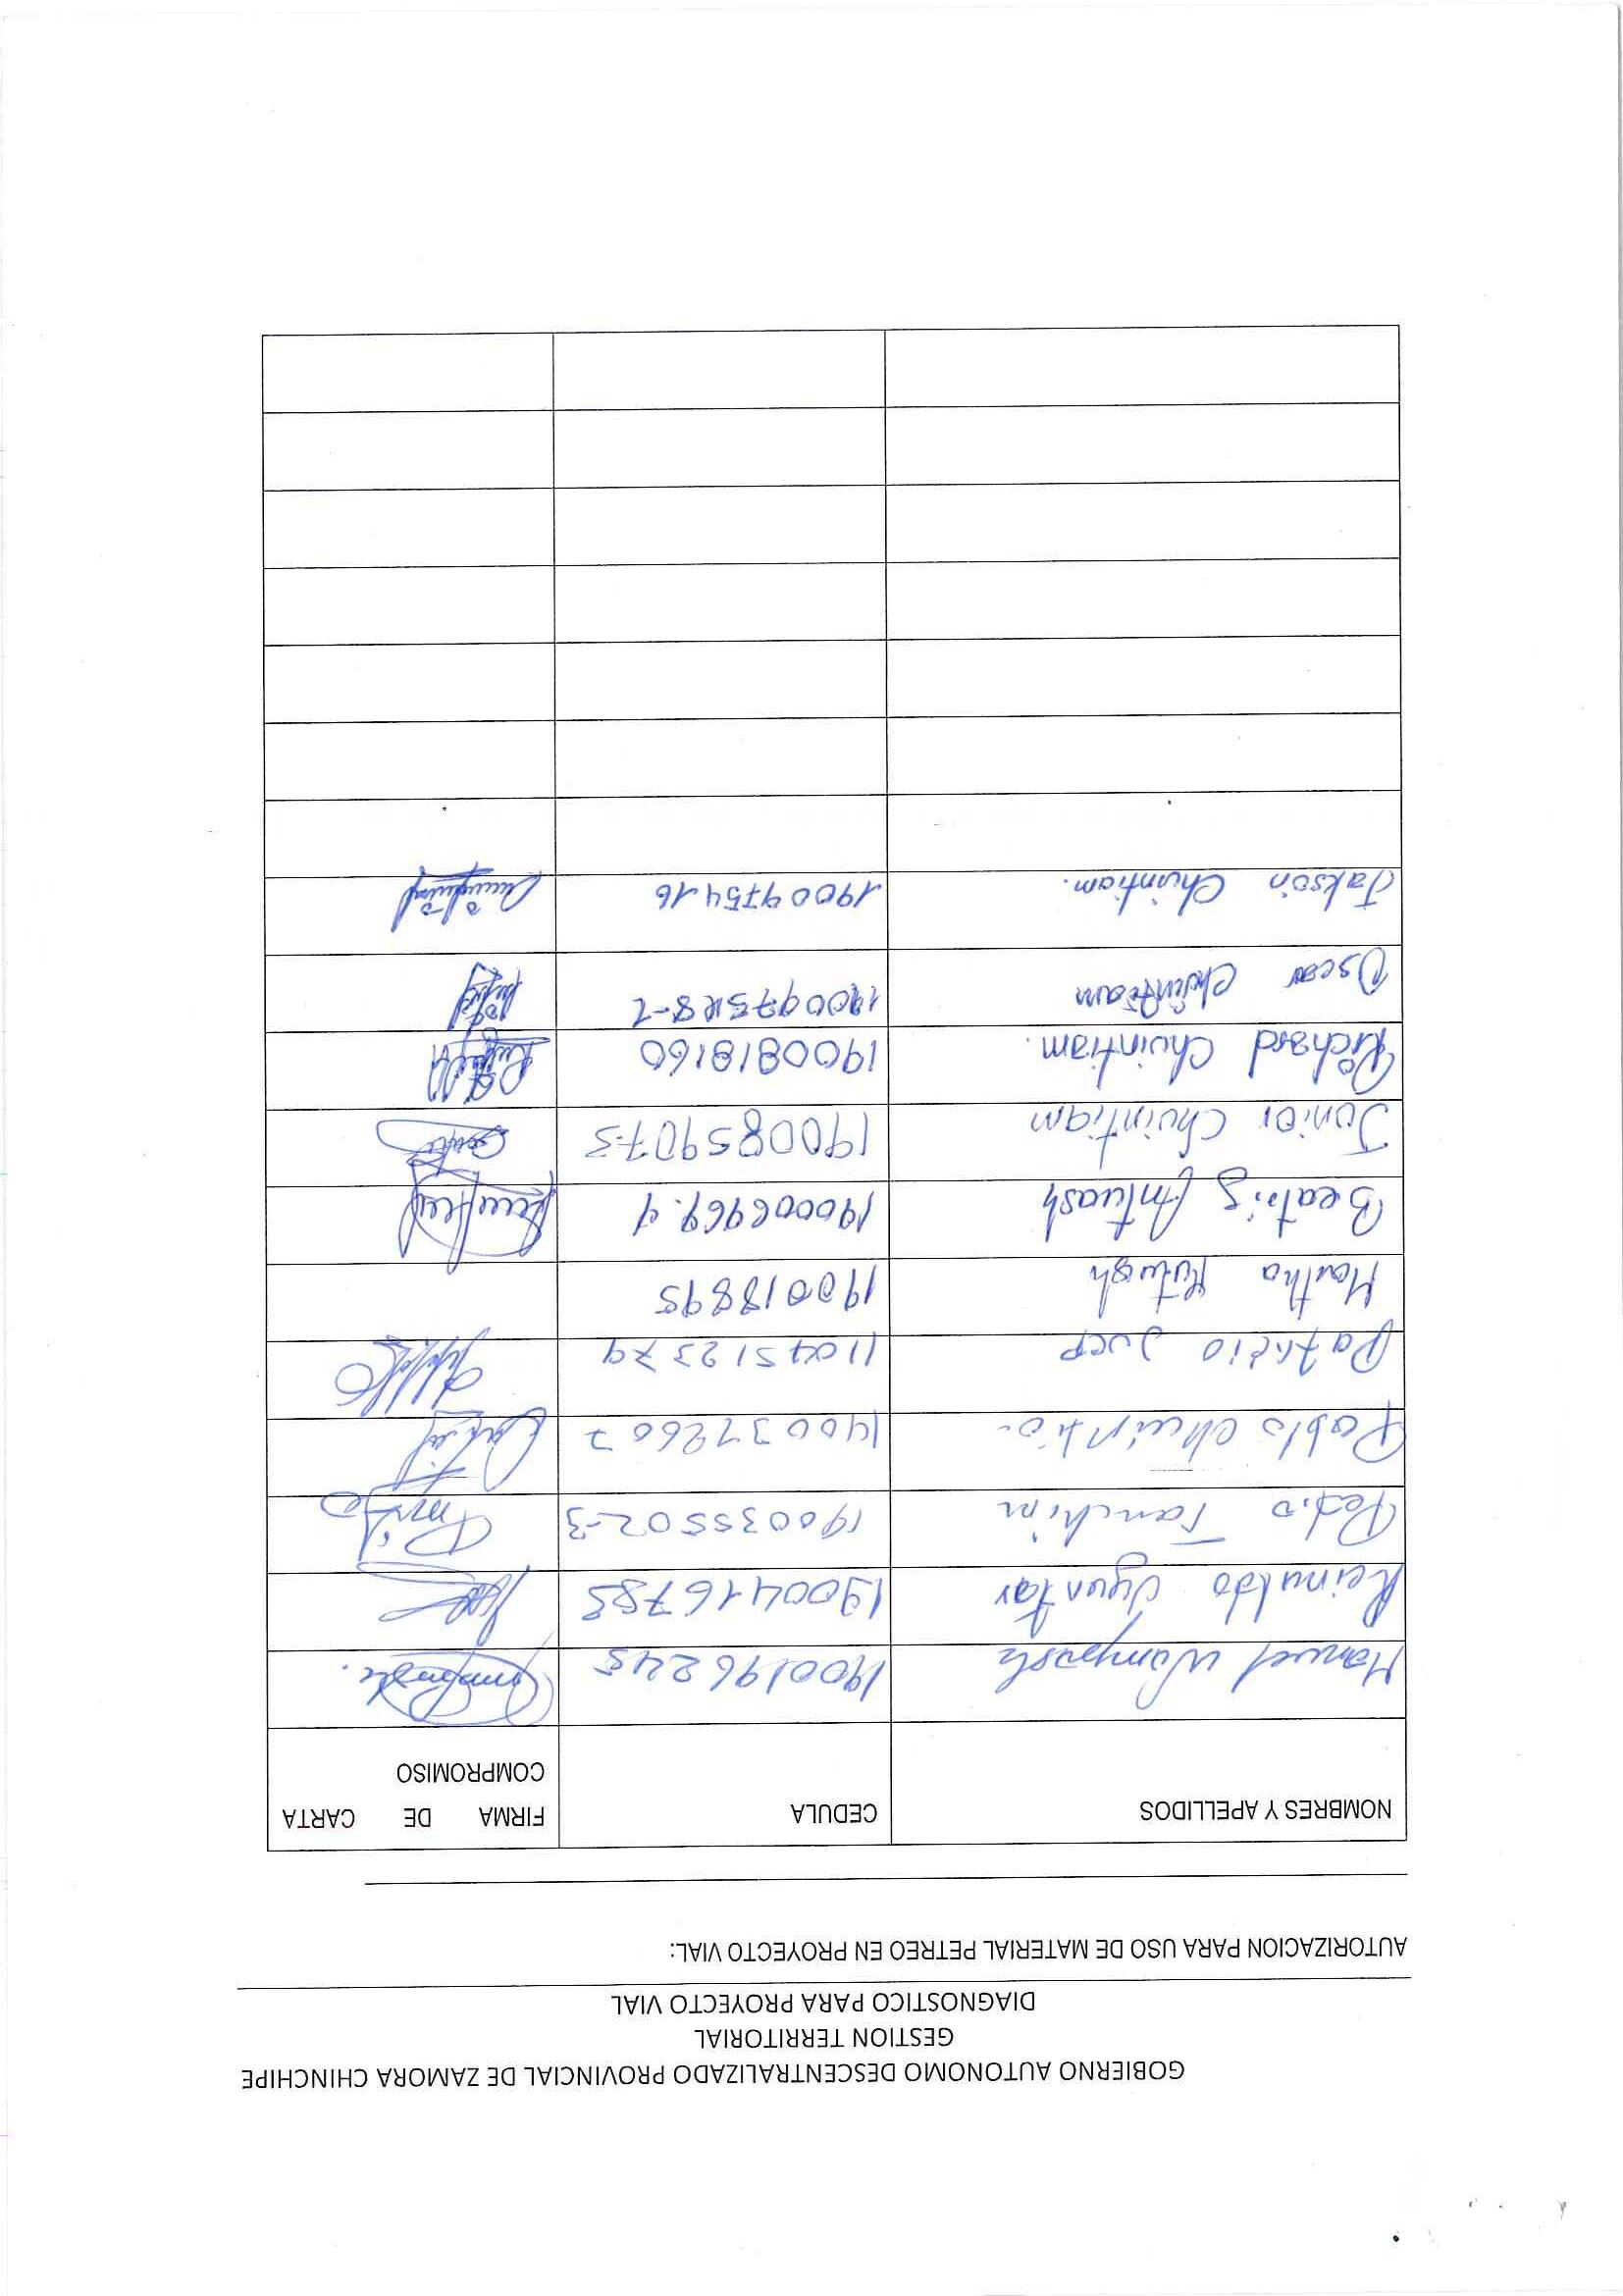 GOBIERNO AUTONOMO DESCENTRALIZADO PROVINCIAL DE ZAMORA CHINCHIPE
GESTION TERRITORIAL
DIAGNOSTICO PARA PROYECTO VIAL
AUTORIZACION PARA USO DE MATERIAL PETREO EN PROYECTO VIAL:
NOMBRES Y APELLIDOS CEDULA FIRMA DE CARTA COMPROMISO
Manuel Wampash 1900196245
Reinaldo 1900416783
Pedro Tanchim 190035502-3
Pablo 1400372607
Patricio Juep 1104512379
Martha 190018895
Beatriz Antuash 190006969.4
Junior Chuintiam 190085907-3
Richard Chuintiam. 1900818160
Oscar Chuintiam
Jakson Chuintiam. 1900975416